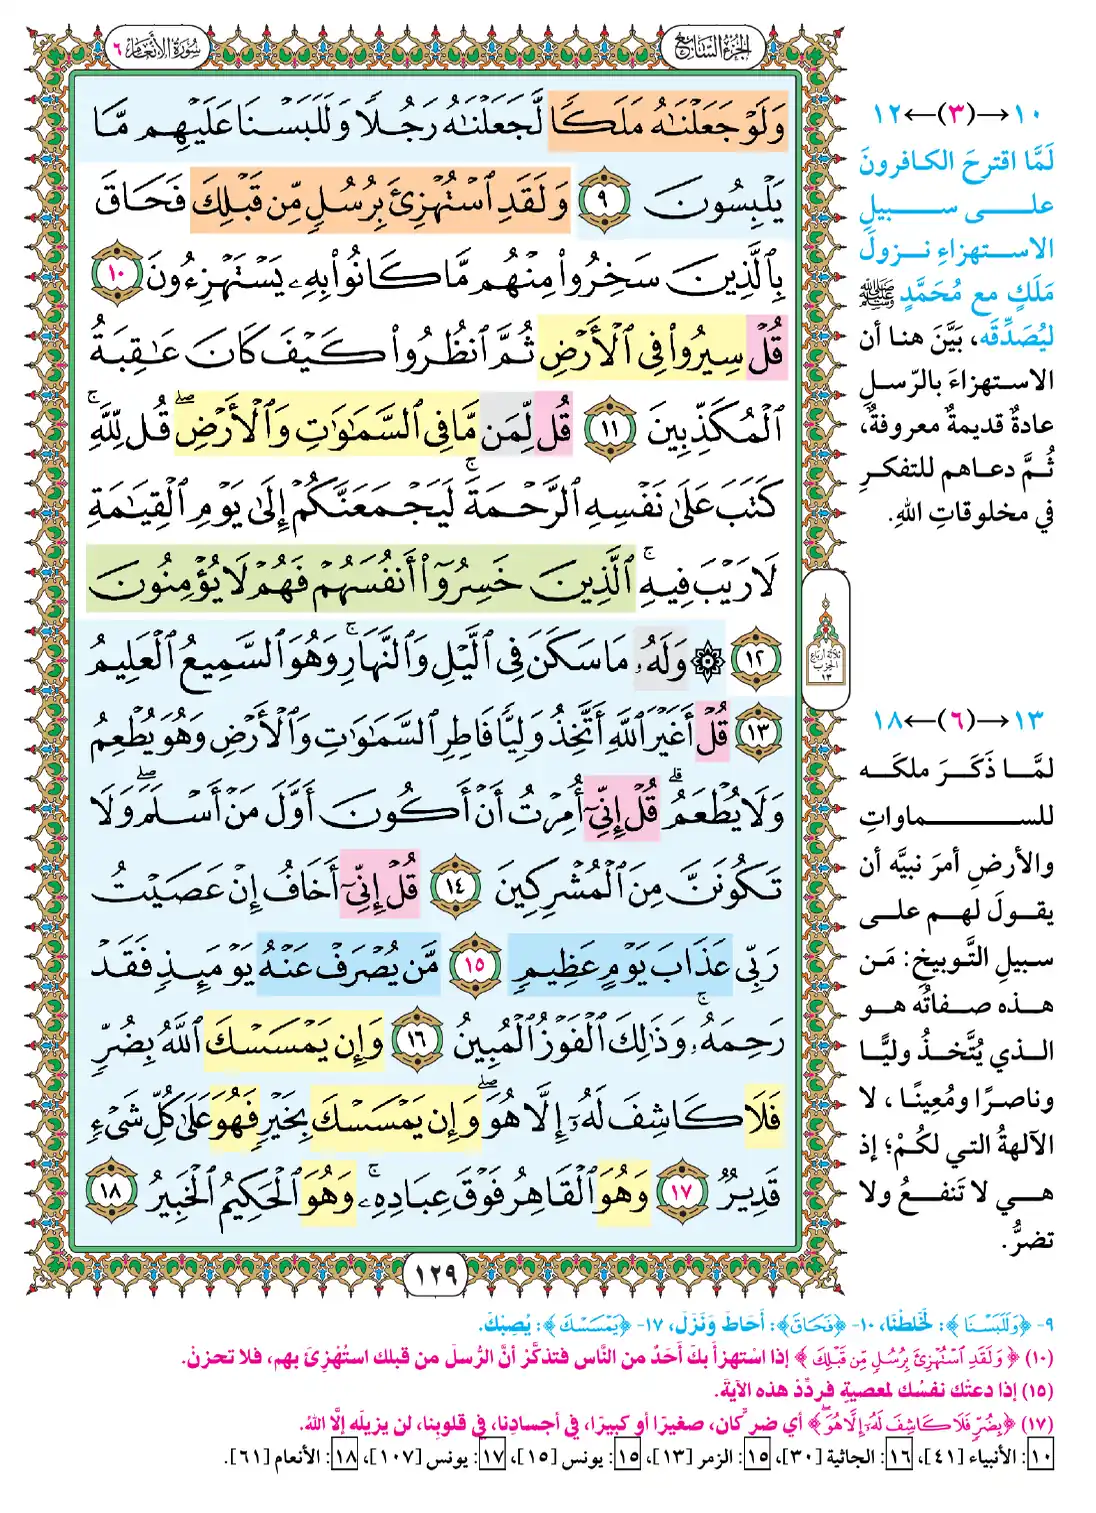 سُورَةُ الأَنْعَامِ ٦
الجُزْءُ السَّابِعُ
وَلَوْ جَعَلْنَٰهُ مَلَكًا لَّجَعَلْنَٰهُ رَجُلًا وَلَلَبَسْنَا عَلَيْهِم مَّا
يَلْبِسُونَ ٩ وَلَقَدِ ٱسْتُهْزِئَ بِرُسُلٍ مِّن قَبْلِكَ فَحَاقَ
بِٱلَّذِينَ سَخِرُوا۟ مِنْهُم مَّا كَانُوا۟ بِهِۦ يَسْتَهْزِءُونَ ١٠
قُلْ سِيرُوا۟ فِى ٱلْأَرْضِ ثُمَّ ٱنظُرُوا۟ كَيْفَ كَانَ عَٰقِبَةُ
ٱلْمُكَذِّبِينَ ١١ قُل لِّمَن مَّا فِى ٱلسَّمَٰوَٰتِ وَٱلْأَرْضِ ۖ قُل لِّلَّهِ ۚ
كَتَبَ عَلَىٰ نَفْسِهِ ٱلرَّحْمَةَ ۚ لَيَجْمَعَنَّكُمْ إِلَىٰ يَوْمِ ٱلْقِيَٰمَةِ
لَا رَيْبَ فِيهِ ۚ ٱلَّذِينَ خَسِرُوٓا۟ أَنفُسَهُمْ فَهُمْ لَا يُؤْمِنُونَ
١٢ ۞ وَلَهُۥ مَا سَكَنَ فِى ٱلَّيْلِ وَٱلنَّهَارِ ۚ وَهُوَ ٱلسَّمِيعُ ٱلْعَلِيمُ
١٣ قُلْ أَغَيْرَ ٱللَّهِ أَتَّخِذُ وَلِيًّا فَاطِرِ ٱلسَّمَٰوَٰتِ وَٱلْأَرْضِ وَهُوَ يُطْعِمُ
وَلَا يُطْعَمُ ۗ قُلْ إِنِّىٓ أُمِرْتُ أَنْ أَكُونَ أَوَّلَ مَنْ أَسْلَمَ ۖ وَلَا
تَكُونَنَّ مِنَ ٱلْمُشْرِكِينَ ١٤ قُلْ إِنِّىٓ أَخَافُ إِنْ عَصَيْتُ
رَبِّى عَذَابَ يَوْمٍ عَظِيمٍ ١٥ مَّن يُصْرَفْ عَنْهُ يَوْمَئِذٍ فَقَدْ
رَحِمَهُۥ ۚ وَذَٰلِكَ ٱلْفَوْزُ ٱلْمُبِينُ ١٦ وَإِن يَمْسَسْكَ ٱللَّهُ بِضُرٍّ
فَلَا كَاشِفَ لَهُۥٓ إِلَّا هُوَ ۖ وَإِن يَمْسَسْكَ بِخَيْرٍ فَهُوَ عَلَىٰ كُلِّ شَىْءٍ
قَدِيرٌ ١٧ وَهُوَ ٱلْقَاهِرُ فَوْقَ عِبَادِهِۦ ۚ وَهُوَ ٱلْحَكِيمُ ٱلْخَبِيرُ ١٨
١٢٩
١٠→(٣)←١٢
لَمَّا اقترحَ الكافرونَ
على سبيلِ
الاستهزاءِ نزولَ
مَلَكٍ مع مُحَمَّدٍ ﷺ
ليُصَدِّقَه، بَيَّنَ هنا أن
الاستهزاءَ بالرّسلِ
عادةٌ قديمةٌ معروفةٌ،
ثُمَّ دعاهم للتفكرِ
في مخلوقاتِ اللهِ.
ثلاثة أرباع
الحزب
١٣
١٣→(٦)←١٨
لمَّا ذَكَرَ ملكَه
للسماواتِ
والأرضِ أمرَ نبيَّه أن
يقولَ لهم على
سبيلِ التَّوبيخِ: مَن
هذه صفاتُه هو
الذي يُتَّخذُ وليًّا
وناصرًا ومُعِينًا، لا
الآلهةُ التي لكُمْ؛ إذ
هي لا تَنفعُ ولا
تضرُّ.
٩- ﴿وَلَلَبَسْنَا﴾: لَخَلَطْنَا، ١٠- ﴿فَحَاقَ﴾: أَحَاطَ وَنَزَلَ، ١٧- ﴿يَمْسَسْكَ﴾: يُصِبْكَ.
(١٠) ﴿وَلَقَدِ ٱسْتُهْزِئَ بِرُسُلٍ مِّن قَبْلِكَ﴾ إذا اسْتهزأ بكَ أحَدٌ من النَّاس فتذكَّرْ أنَّ الرُّسلَ من قبلك استُهْزِئَ بهم، فلا تحزنْ.
(١٥) إذا دعتْك نفسُك لمعصيةٍ فردِّدْ هذه الآيةَ.
(١٧) ﴿بِضُرٍّ فَلَا كَاشِفَ لَهُۥٓ إِلَّا هُوَ﴾ أي ضر كان، صغيرًا أو كبيرًا، في أجسادِنا، في قلوبِنا، لن يزيلَه إلَّا اللهُ.
١٠: الأنبياء [٤١]، ١٦: الجاثية [٣٠]، ١٥: الزمر [١٣]، ١٥: يونس [١٥]، ١٧: يونس [١٠٧]، ١٨: الأنعام [٦١].